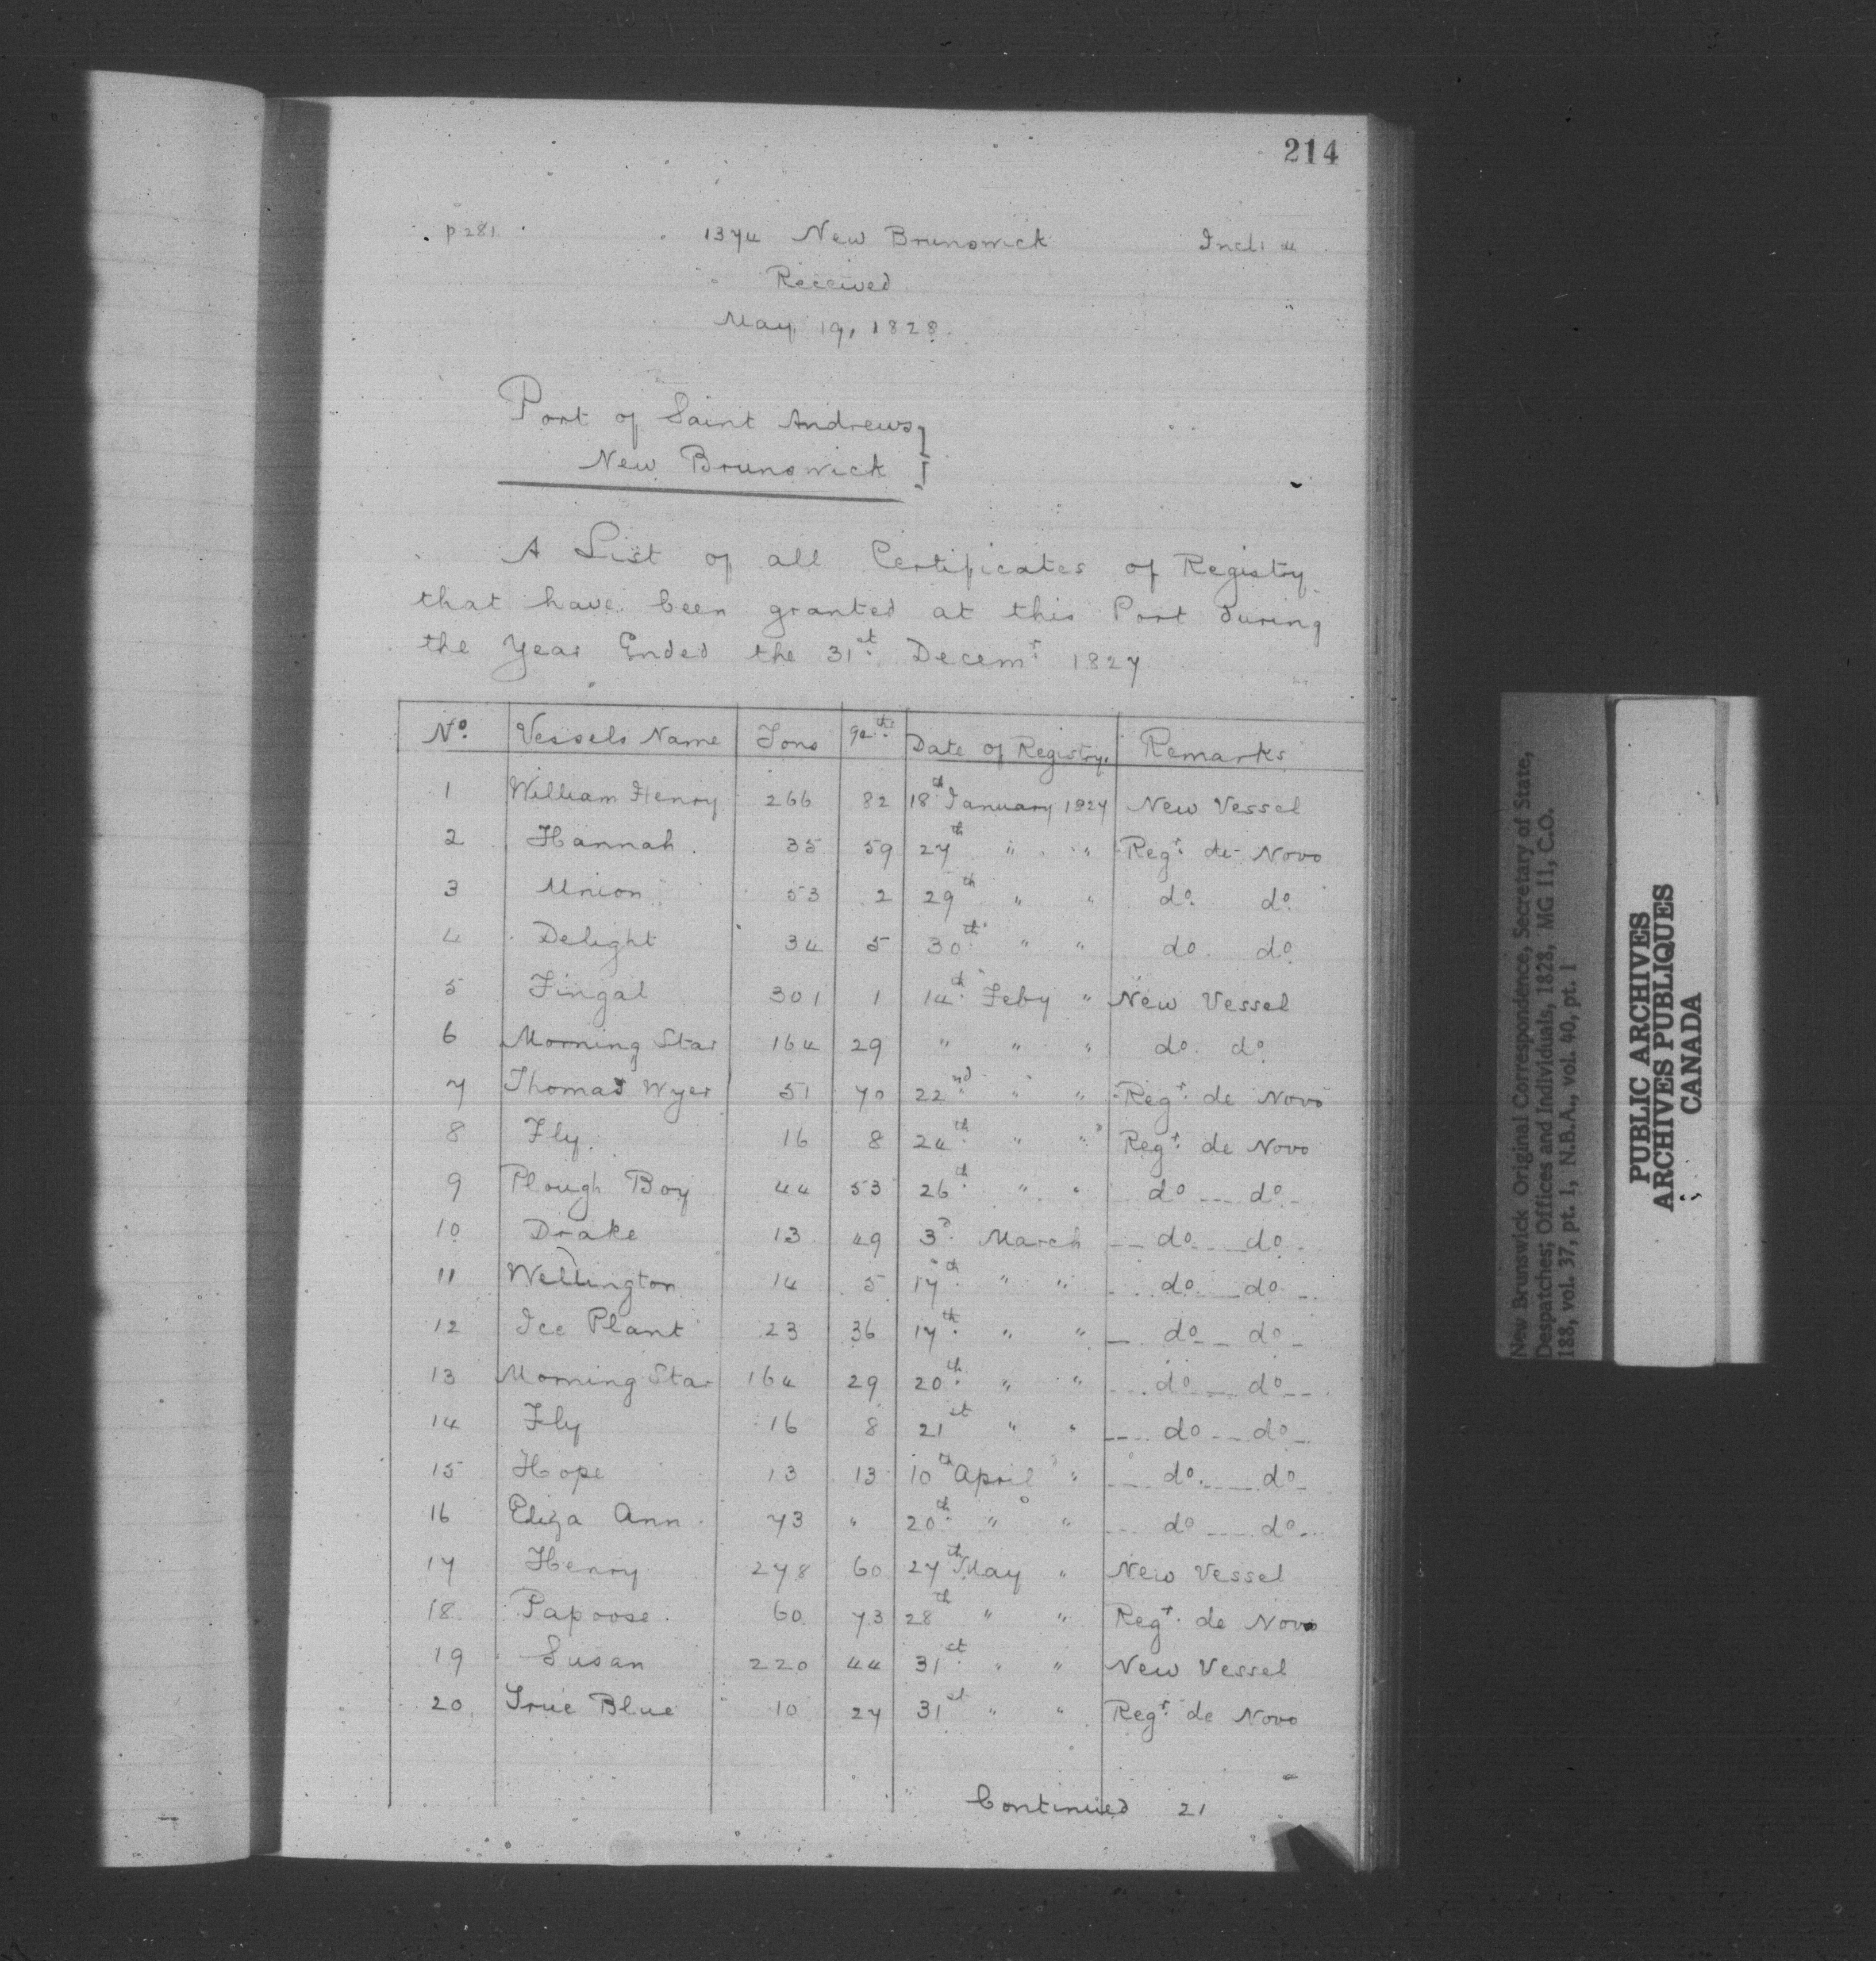 214
p 281 1374 New Brunswick Incl: 4
Received
May 19, 1828.
Port of Saint Andrews }
New Brunswick }
A List of all Certificates of Registry
that have been granted at this Port during
the Year Ended the 31st Decemr 1827
No. Vessels Name Tons 94ths Date of Registry. Remarks
1 William Henry 266 82 18th January 1827 New Vessel
2 Hannah. 35 59 27th " " Regt. de Novo
3 Union 53 2 29th " " do. do.
4 Delight 34 5 30th " " do. do.
5 Fingal 301 1 14th Feby " New Vessel
6 Morning Star 164 29 " " " do. do.
7 Thomas Wyer 51 70 22nd " " Regt. de Novo
8 Fly. 16 8 24th " " Regt. de Novo
9 Plough Boy 44 53 26th " " do do
10 Drake 13 49 3d. March do do.
11 Wellington 14 5 17th " " do do
12 Ice Plant 23 36 17th " " do do
13 Morning Star 164 29 20th " " do do
14 Fly 16 8 21st " " do do
15 Hope 13 13 10th April " do. do
16 Eliza Ann 73 " 20th " " do do
17 Henry 278 60 27th May " New Vessel
18 Papoose. 60 73 28th " " Regt. de Novo
19 Susan 220 44 31st " " New Vessel
20 True Blue 10 27 31st " " Regt. de Novo
Continued 21
New Brunswick Original Correspondence, Secretary of State,
Despatches; Offices and Individuals, 1828, MG 11, C.O.
188, vol. 37, pt. 1, N.B.A., vol. 40, pt. 1
PUBLIC ARCHIVES
ARCHIVES PUBLIQUES
CANADA